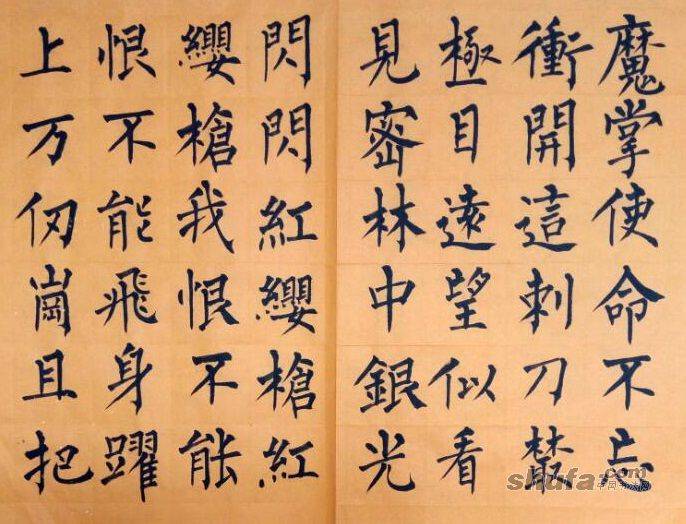 魔掌使命不忘
衝開這刺刀叢
極目遠望似看
見密林中銀光
閃閃紅纓槍紅
纓槍我恨不能
恨不能飛身躍
上万仞崗且把
shufa.com